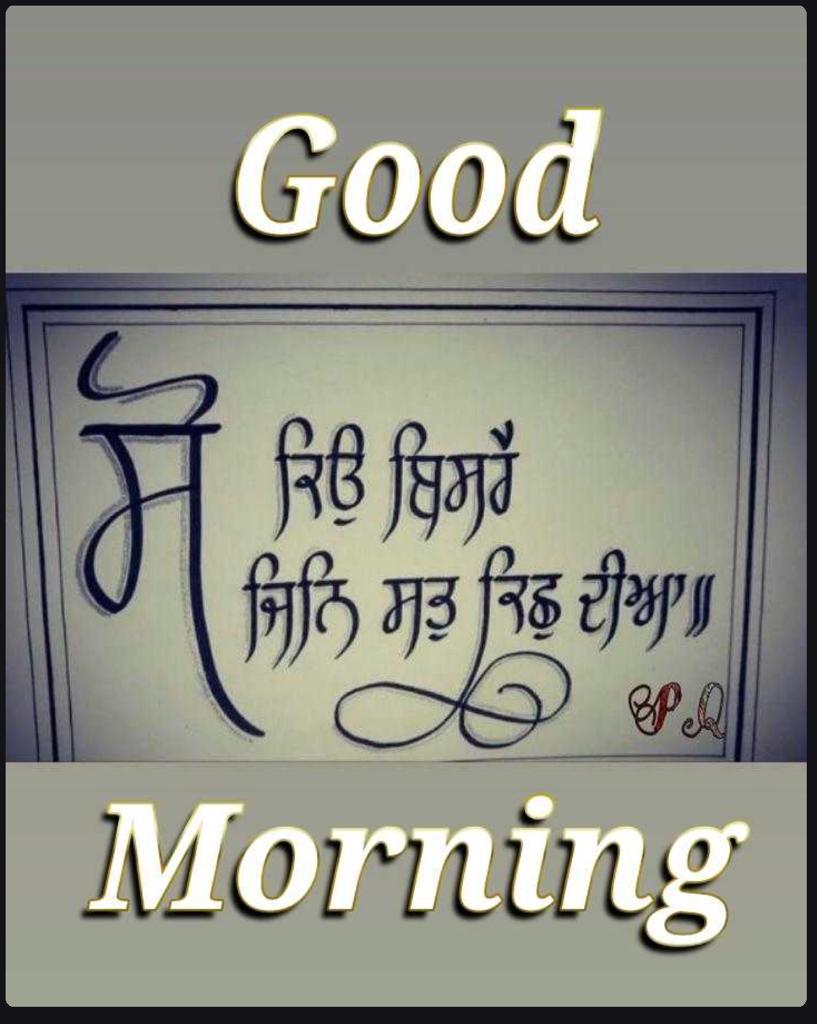 Good
ਸੋ ਕਿਉ ਬਿਸਰੈ
ਜਿਨਿ ਸਭੁ ਕਿਛੁ ਦੀਆ॥
BP Q
Morning